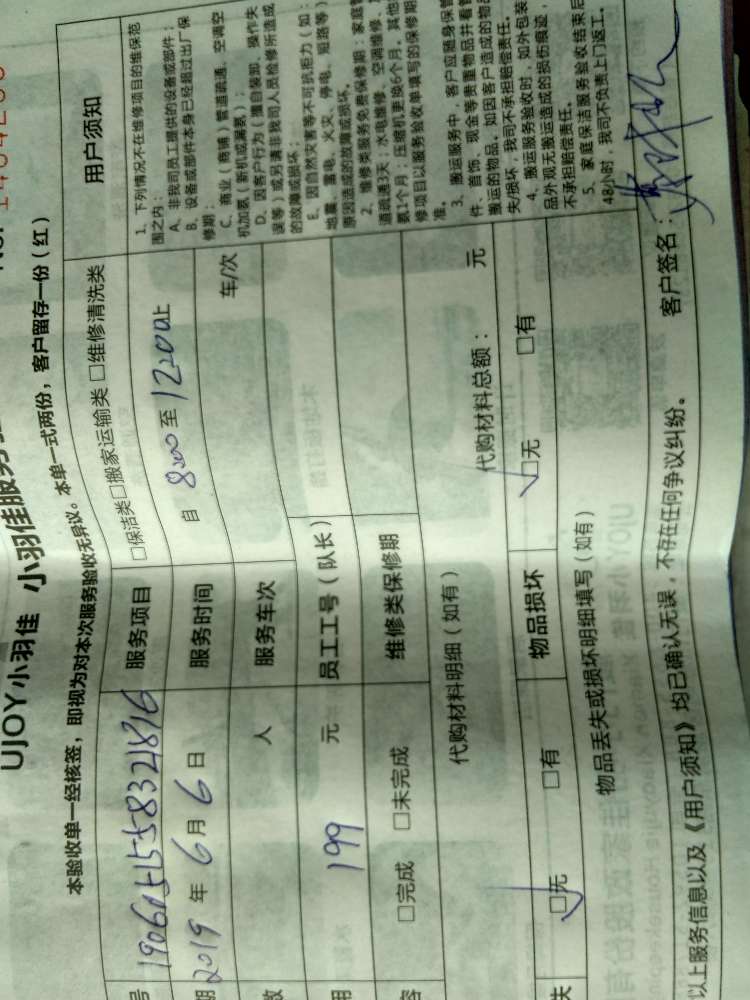 No. 1404200
UJOY小羽佳 小羽佳服务
本验收单一经核签，即视为对本次服务验收无异议。本单一式两份，客户留存一份（红）
号 服务项目 □保洁类□搬家运输类 □维修清洗类
期 2019 年 6 月 6 日 服务时间 自 8:00 至 12:00 止
数 人 服务车次 车/次
用 199 元 员工工号（队长）
容 □完成 □未完成 维修类保修期
代购材料明细（如有） 代购材料总额： 元
失 □无 □有 物品损坏 □无 □有
物品丢失或损坏明细填写（如有）
以上服务信息以及《用户须知》均已确认无误，不存在任何争议纠纷。 客户签名：
用户须知
1、下列情况不在维修项目的维保范
围之内：
A、非我司员工提供的设备或部件；
B、设备或部件本身已经超过出厂保
修期；
C、商业（商铺）管道疏通、空调空
机加氨（新机或漏氨）；
D、因客户行为（擅自装卸、操作失
误等）或另请非我司人员检修所造成
的故障或损坏；
E、因自然灾害等不可抗拒力（如：
地震、雷电、火灾、停电、短路等）
原因造成的故障或损坏。
2、维修类服务免费保修期：家庭管
道疏通3天；水电维修、空调维修、
氨1个月；压缩机更换6个月。其他
修项目以服务验收单填写的保修期
准。
3、搬运服务中，客户应随身保管
件、首饰、现金等贵重物品并看管
搬运的物品。如因客户造成的物品
失/损坏，我司不承担赔偿责任。
4、搬运服务验收时，如外包装
品外观无搬运造成的损伤痕迹，
不承担赔偿责任。
5、家庭保洁服务验收结束后
48小时，我司不负责上门返工。